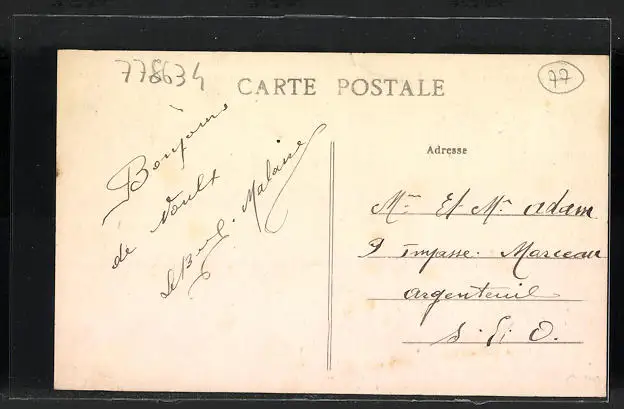 778634
CARTE POSTALE
77
Bonjour
de Voulx
Adresse
Mme Et Mr Adam
9 Impasse. Marceau
argenteuil
S. Et O.